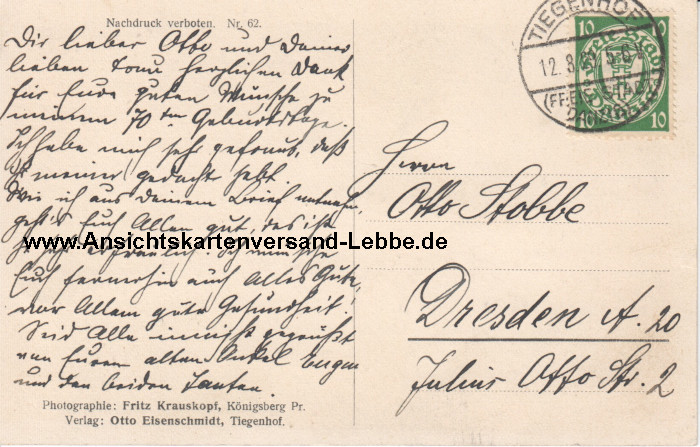 Nachdruck verboten. Nr. 62.
Dir lieber Otto und Deiner
lieben Frau herzlichen Dank
für Eure guten Wünsche zu
meinem 70ten Geburtstage.
Ich habe mich sehr gefreut, daß
Ihr meiner gedacht habt.
Wie ich aus deinem Brief entnehme,
geht's Euch Allen gut, das ist
sehr erfreulich. Ich wünsche
Euch fernerhin auch Alles Gute,
vor Allem gute Gesundheit!
Seid Alle innigst gegrüßt
von Eurem alten Onkel Eugen
und den beiden Tanten.
Photographie: Fritz Krauskopf, Königsberg Pr.
Verlag: Otto Eisenschmidt, Tiegenhof.
TIEGENHOF
12.8.
(FREIE STADT
DANZIG)
10 10
Freie Stadt
Danzig
10 10
Herrn
Otto Stobbe
Dresden A. 20
Julius Otto Str. 2
www.Ansichtskartenversand-Lebbe.de